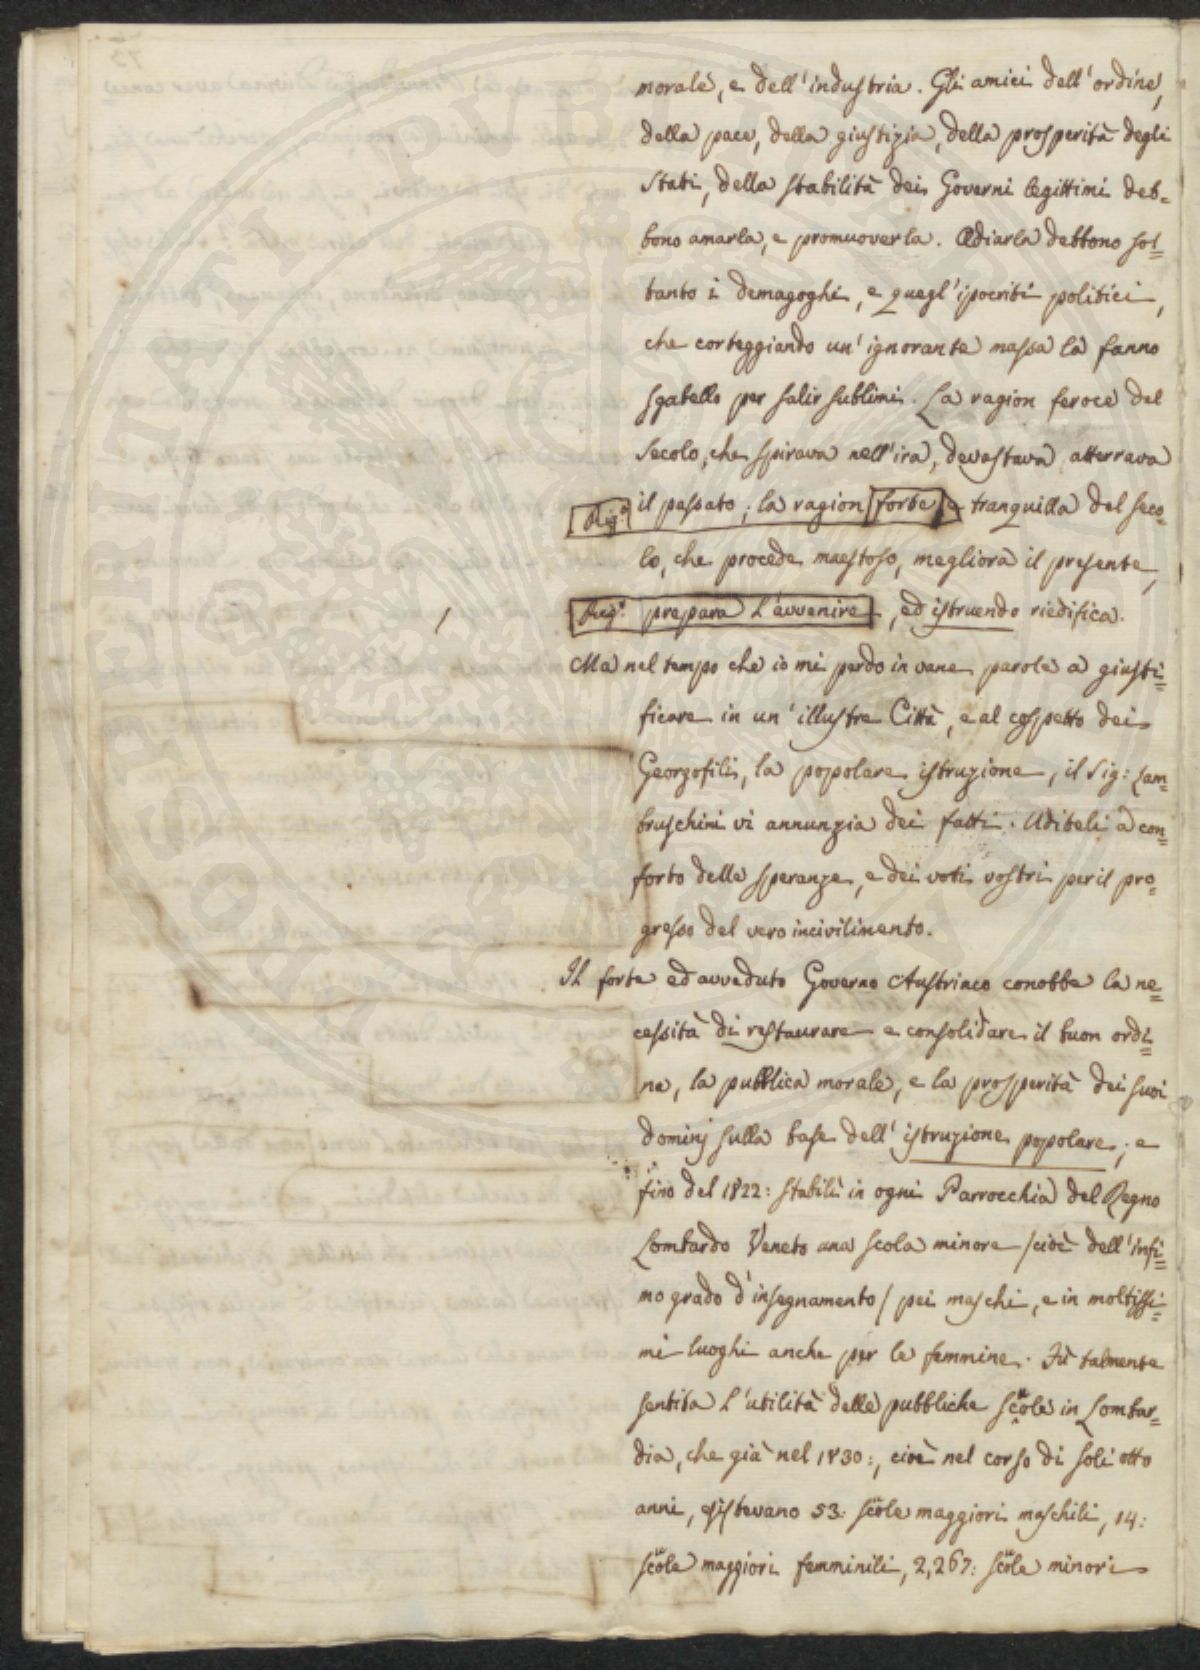 morale, e dell'industria. Gli amici dell'ordine,
della pace, della giustizia, della prosperità degli
Stati, della stabilità dei Governi legittimi deb=
bono amarla, e promuoverla. Odiarla debbono sol=
tanto i demagoghi, e quegl'ipocriti politici,
che corteggiando un'ignorante massa la fanno
sgabello per salir sublimi. La ragion feroce del
Secolo, che spirava nell'ira, devastava, atterrava
il passato; la ragion forte e tranquilla del seco=
lo, che procede maestoso, megliora il presente,
prepara l'avvenire, ed istruendo riedifica.
Ma nel tempo che io mi perdo in vane parole a giusti=
ficare in un'illustre Città, e al cospetto dei
Georgofili, la popolare istruzione, il Sig: Lam=
bruschini vi annunzia dei fatti. Uditeli a con=
forto delle speranze, e dei voti vostri per il pro=
gresso del vero incivilimento.
Il forte ed avveduto Governo Austriaco conobbe la ne=
cessità di restaurare e consolidare il buon ordi=
ne, la pubblica morale, e la prosperità dei suoi
dominj sulla base dell'istruzione popolare; e
fino del 1822: stabilì in ogni Parrocchia del Regno
Lombardo Veneto una scola minore /cioè dell'infi=
mo grado d'insegnamento/ pei maschi, e in moltissi=
mi luoghi anche per le femmine. Fù talmente
sentita l'utilità delle pubbliche scuole in Lombar=
dia, che già nel 1830:, cioè nel corso di soli otto
anni, esistevano 53: scuole maggiori maschili, 14:
scuole maggiori femminili, 2,267: scuole minori